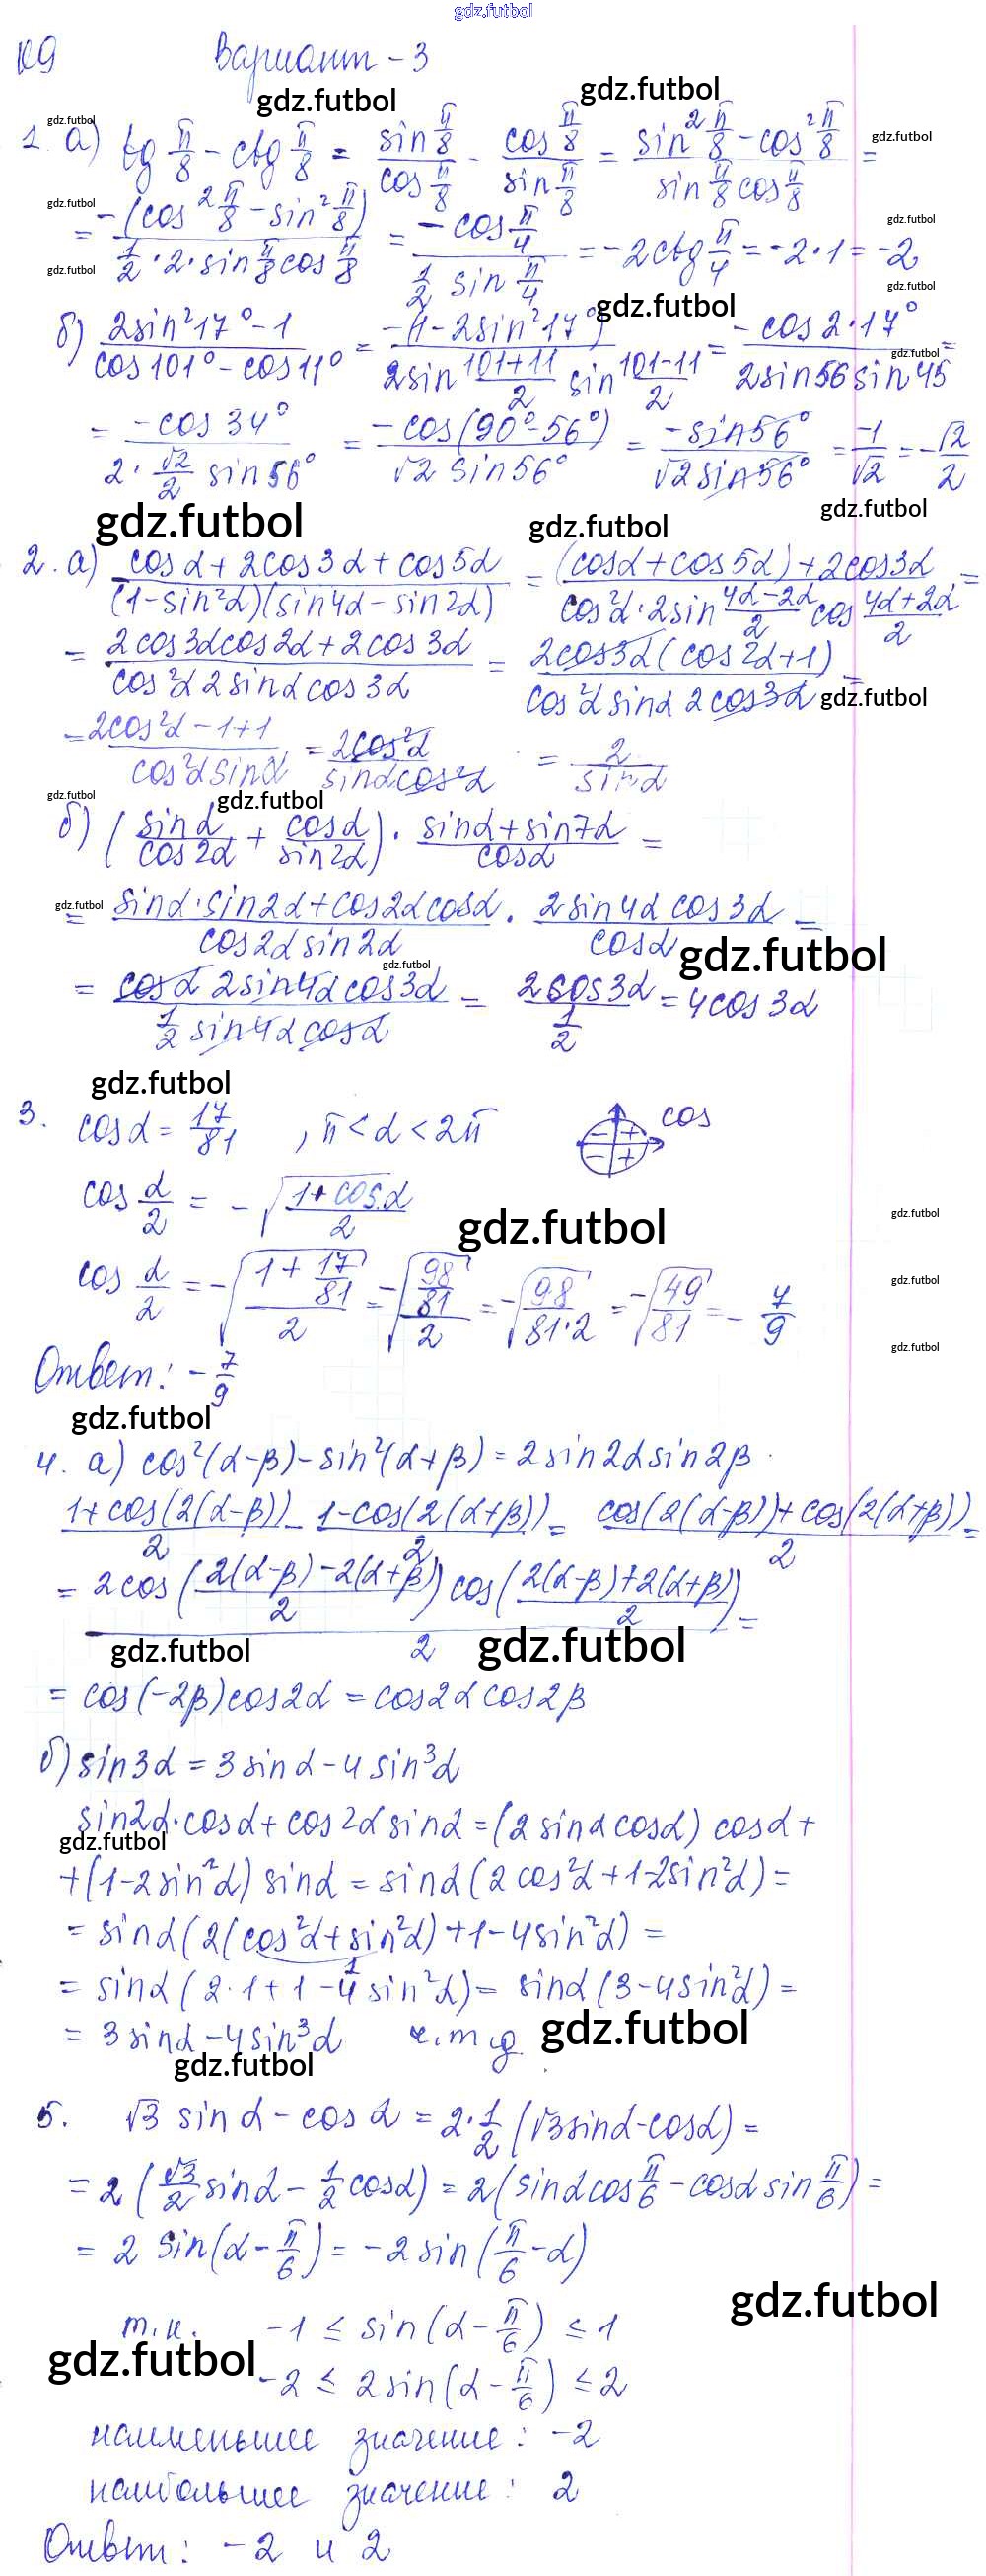 gdz.futbol
К9 Вариант - 3
gdz.futbol gdz.futbol
gdz.futbol gdz.futbol
1. а) tg π/8 - ctg π/8 = sin π/8 / cos π/8 - cos π/8 / sin π/8 = (sin² π/8 - cos² π/8) / (sin π/8 cos π/8) =
gdz.futbol gdz.futbol
= -(cos² π/8 - sin² π/8) / (1/2 · 2 · sin π/8 cos π/8) = -cos π/4 / (1/2 sin π/4) = -2ctg π/4 = -2·1 = -2
gdz.futbol gdz.futbol
gdz.futbol
б) (2sin²17° - 1) / (cos101° - cos11°) = -(1 - 2sin²17°) / (2sin (101+11)/2 sin (101-11)/2) = -cos2·17° / (2sin56 sin45) =
gdz.futbol
= -cos34° / (2 · √2/2 sin56°) = -cos(90° - 56°) / (√2 sin56°) = -sin56° / (√2 sin56°) = -1/√2 = -√2/2
gdz.futbol gdz.futbol gdz.futbol
2. а) (cosα + 2cos3α + cos5α) / ((1 - sin²α)(sin4α - sin2α)) = ((cosα + cos5α) + 2cos3α) / (cos²α · 2sin (4α-2α)/2 cos (4α+2α)/2) =
= (2cos3αcos2α + 2cos3α) / (cos²α 2sinαcos3α) = 2cos3α(cos2α + 1) / (cos²α sinα 2cos3α) =
gdz.futbol
= (2cos²α - 1 + 1) / (cos²α sinα) = 2cos²α / (sinαcos²α) = 2 / sinα
gdz.futbol gdz.futbol
б) (sinα/cos2α + cosα/sin2α) · (sinα + sin7α)/cosα =
gdz.futbol
= (sinα·sin2α + cos2αcosα) / (cos2αsin2α) · 2sin4αcos3α / cosα =
gdz.futbol gdz.futbol
= cosα 2sin4αcos3α / (1/2 sin4αcosα) = 2cos3α / (1/2) = 4cos3α
gdz.futbol
3. cosα = 17/81 , π < α < 2π cos
- + - +
cos α/2 = -√((1 + cosα)/2)
gdz.futbol gdz.futbol
cos α/2 = -√((1 + 17/81)/2) = -√((98/81)/2) = -√(98/(81·2)) = -√(49/81) = -7/9
gdz.futbol
gdz.futbol
Ответ: -7/9
gdz.futbol
4. а) cos²(α-β) - sin²(α+β) = 2sin2αsin2β
(1 + cos(2(α-β)))/2 - (1 - cos(2(α+β)))/2 = (cos(2(α-β)) + cos(2(α+β)))/2 =
= 2cos((2(α-β) - 2(α+β))/2) cos((2(α-β) + 2(α+β))/2) / 2 =
gdz.futbol gdz.futbol
= cos(-2β)cos2α = cos2αcos2β
б) sin3α = 3sinα - 4sin³α
sin2α·cosα + cos2αsinα = (2sinαcosα)cosα +
gdz.futbol
+ (1 - 2sin²α)sinα = sinα(2cos²α + 1 - 2sin²α) =
= sinα(2(cos²α + sin²α) + 1 - 4sin²α) =
1
= sinα(2·1 + 1 - 4sin²α) = sinα(3 - 4sin²α) =
= 3sinα - 4sin³α ч.т.д.
gdz.futbol gdz.futbol
5. √3 sinα - cosα = 2·1/2(√3sinα - cosα) =
= 2(√3/2 sinα - 1/2 cosα) = 2(sinαcos π/6 - cosαsin π/6) =
= 2 sin(α - π/6) = -2sin(π/6 - α)
gdz.futbol
т.к. -1 ≤ sin(α - π/6) ≤ 1
gdz.futbol
-2 ≤ 2sin(α - π/6) ≤ 2
наименьшее значение: -2
наибольшее значение: 2
Ответ: -2 и 2